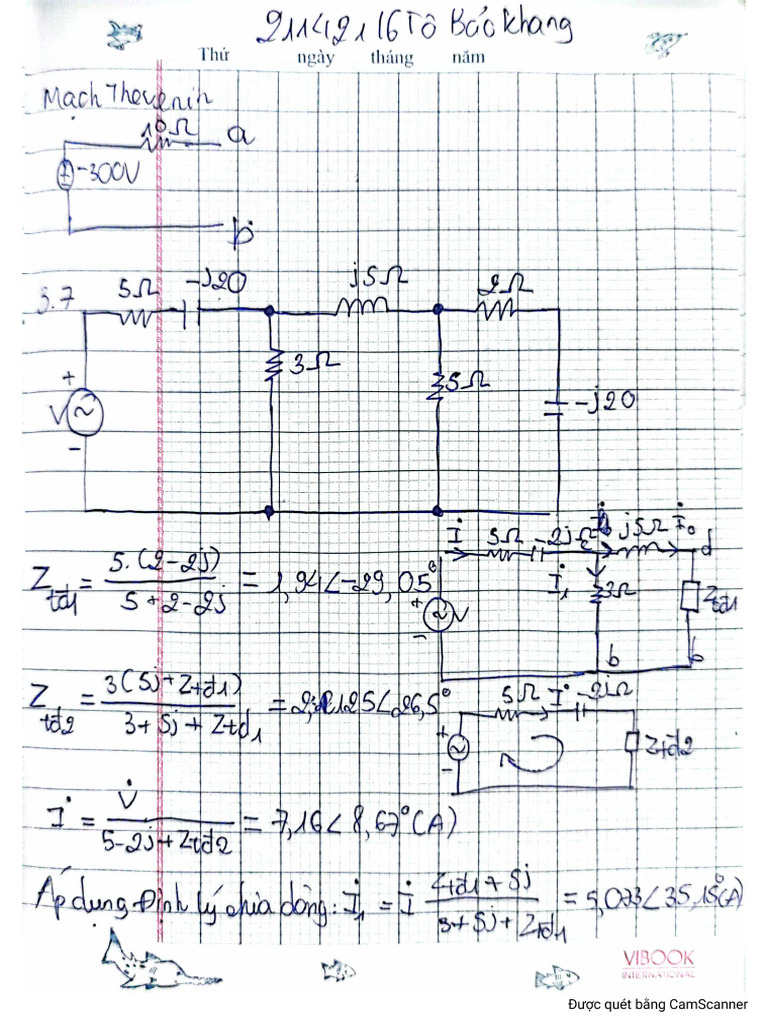 21142116 Tô Bảo Khang
Thứ ngày tháng năm
Mạch Thevenin
10Ω a
-300V
b
3.7 5Ω -j2Ω j5Ω 2Ω
3Ω 5Ω -j2Ω
+
V
-
İ 5Ω -2jΩ j5Ω İ₀ d
Z_tđ1 = 5.(2-2j) / 5+2-2j = 1,94∠-29,05°
İ₁ 3Ω Z_tđ1
+ V -
b b
Z_tđ2 = 3(5j+Z_tđ1) / 3+5j+Z_tđ1 = 2,2125∠26,5°
5Ω İ -2jΩ
+
-
Z_tđ2
İ = V̇ / 5-2j+Z_tđ2 = 7,16∠8,67° (A)
Áp dụng định lý chia dòng: İ₁ = İ Z_tđ1+5j / 3+5j+Z_tđ1 = 5,073∠35,15° (A)
VIBOOK
INTERNATIONAL
Được quét bằng CamScanner